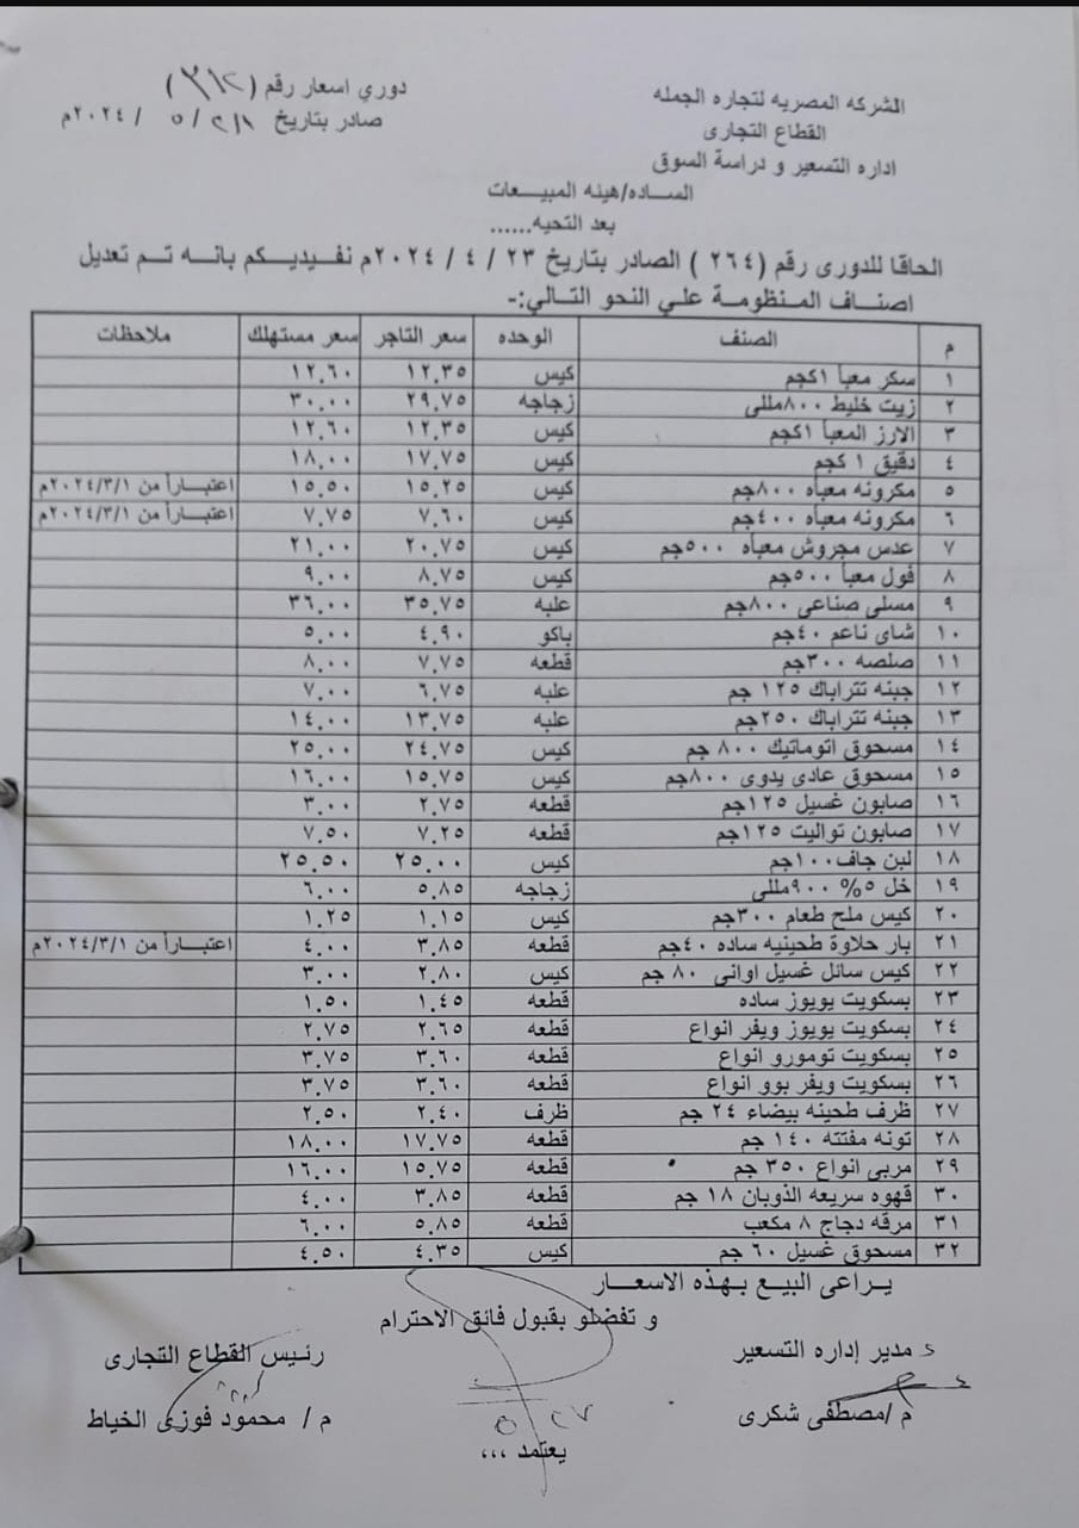 الشركه المصريه لتجاره الجمله
القطاع التجارى
اداره التسعير و دراسة السوق
دوري اسعار رقم (٣١٢)
صادر بتاريخ ٢٨ / ٥ / ٢٠٢٤م
الساده/هيئه المبيعات
بعد التحيه......
الحاقا للدورى رقم (٢٦٤ ) الصادر بتاريخ ٢٣ / ٤ / ٢٠٢٤م نفيديكم بانه تم تعديل
اصناف المنظومة علي النحو التالي:-
م الصنف الوحده سعر التاجر سعر مستهلك ملاحظات
١ سكر معبأ ١كجم كيس ١٢.٣٥ ١٢.٦٠
٢ زيت خليط ٨٠٠مللى زجاجه ٢٩.٧٥ ٣٠.٠٠
٣ الارز المعبا ١كجم كيس ١٢.٣٥ ١٢.٦٠
٤ دقيق ١ كجم كيس ١٧.٧٥ ١٨.٠٠
٥ مكرونه معباه ٨٠٠جم كيس ١٥.٢٥ ١٥.٥٠ اعتباراً من ٢٠٢٤/٣/١م
٦ مكرونه معباه ٤٠٠جم كيس ٧.٦٠ ٧.٧٥ اعتباراً من ٢٠٢٤/٣/١م
٧ عدس مجروش معباه ٥٠٠جم كيس ٢٠.٧٥ ٢١.٠٠
٨ فول معبأ ٥٠٠جم كيس ٨.٧٥ ٩.٠٠
٩ مسلى صناعى ٨٠٠جم علبه ٣٥.٧٥ ٣٦.٠٠
١٠ شاى ناعم ٤٠جم باكو ٤.٩٠ ٥.٠٠
١١ صلصه ٣٠٠جم قطعه ٧.٧٥ ٨.٠٠
١٢ جبنه تتراباك ١٢٥ جم علبه ٦.٧٥ ٧.٠٠
١٣ جبنه تتراباك ٢٥٠جم علبه ١٣.٧٥ ١٤.٠٠
١٤ مسحوق اتوماتيك ٨٠٠ جم كيس ٢٤.٧٥ ٢٥.٠٠
١٥ مسحوق عادى يدوى ٨٠٠جم كيس ١٥.٧٥ ١٦.٠٠
١٦ صابون غسيل ١٢٥جم قطعه ٢.٧٥ ٣.٠٠
١٧ صابون تواليت ١٢٥جم قطعه ٧.٢٥ ٧.٥٠
١٨ لبن جاف١٠٠جم كيس ٢٥.٠٠ ٢٥.٥٠
١٩ خل ٥% ٩٠٠مللى زجاجه ٥.٨٥ ٦.٠٠
٢٠ كيس ملح طعام ٣٠٠جم كيس ١.١٥ ١.٢٥
٢١ بار حلاوة طحينيه ساده ٤٠جم قطعه ٣.٨٥ ٤.٠٠ اعتباراً من ٢٠٢٤/٣/١م
٢٢ كيس سائل غسيل اوانى ٨٠ جم كيس ٢.٨٠ ٣.٠٠
٢٣ بسكويت يويوز ساده قطعه ١.٤٥ ١.٥٠
٢٤ بسكويت يويوز ويفر انواع قطعه ٢.٦٥ ٢.٧٥
٢٥ بسكويت تومورو انواع قطعه ٣.٦٠ ٣.٧٥
٢٦ بسكويت ويفر بوو انواع قطعه ٣.٦٠ ٣.٧٥
٢٧ ظرف طحينه بيضاء ٢٤ جم ظرف ٢.٤٠ ٢.٥٠
٢٨ تونه مفتته ١٤٠ جم قطعه ١٧.٧٥ ١٨.٠٠
٢٩ مربى انواع ٣٥٠ جم قطعه ١٥.٧٥ ١٦.٠٠
٣٠ قهوه سريعه الذوبان ١٨ جم قطعه ٣.٨٥ ٤.٠٠
٣١ مرقه دجاج ٨ مكعب قطعه ٥.٨٥ ٦.٠٠
٣٢ مسحوق غسيل ٦٠ جم كيس ٤.٣٥ ٤.٥٠
يراعى البيع بهذه الاسعار
و تفضلو بقبول فائق الاحترام
مدير إداره التسعير
رئيس القطاع التجارى
م /مصطفى شكرى
م / محمود فوزى الخياط
يعتمد ،،،